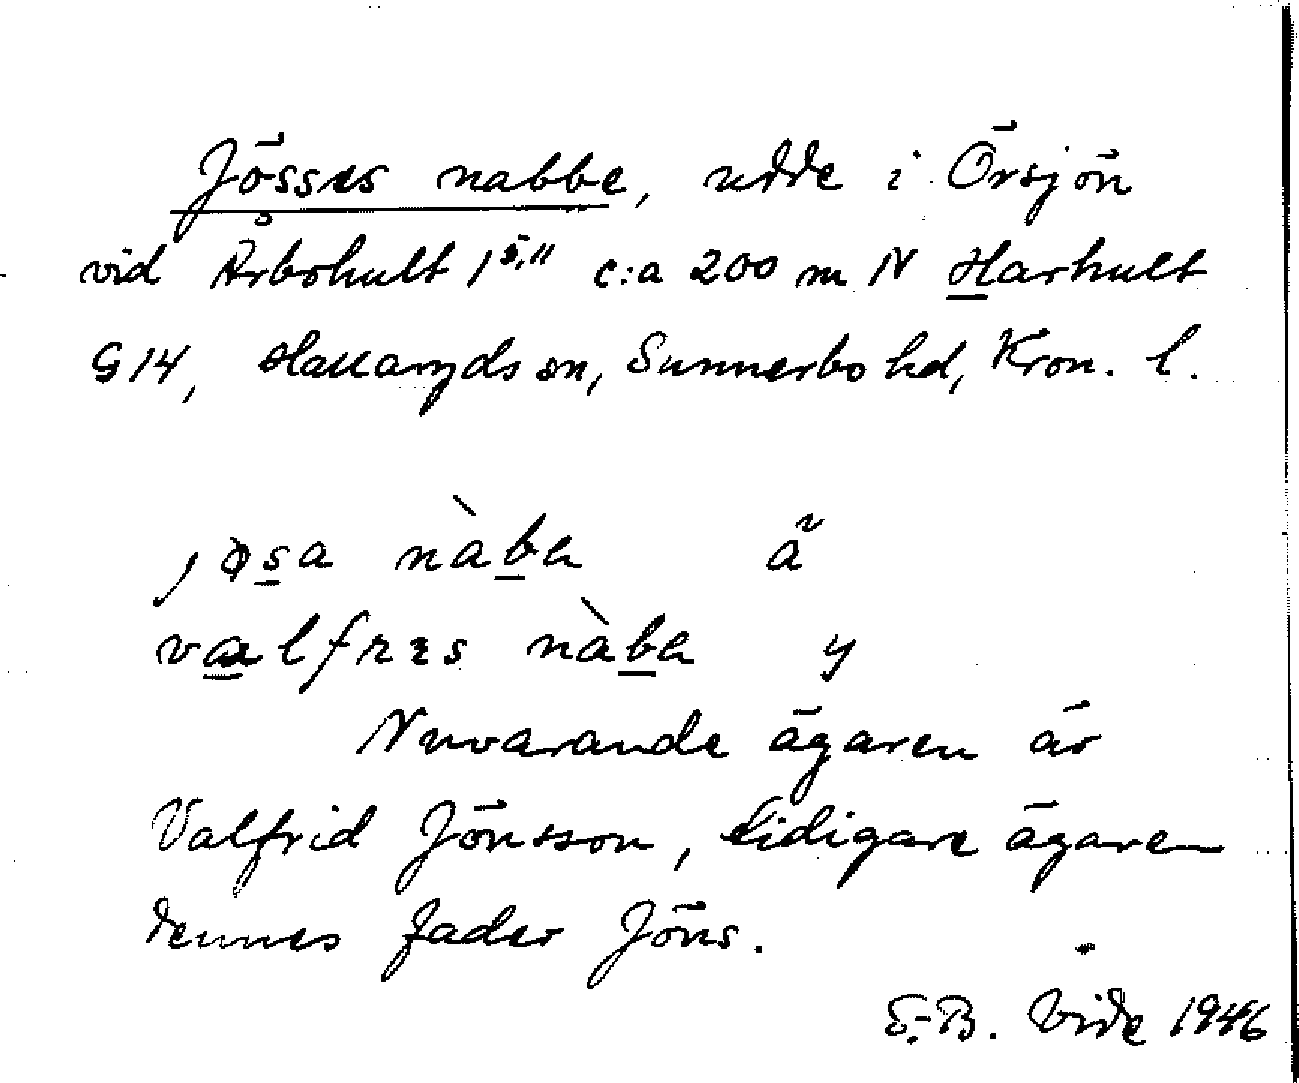 Jösses nabbe, udde i Örsjön
vid Årbohult 1⁵,¹¹ c:a 200 m N Harhult
G 14, Hallaryds sn, Sunnerbo hd, Kron. l.
jøsa nàba ã
valfrɪs nàba y
Nuvarande ägaren är
Valfrid Jönsson, tidigare ägaren
dennes fader Jöns.
E.-B. Vide 1946